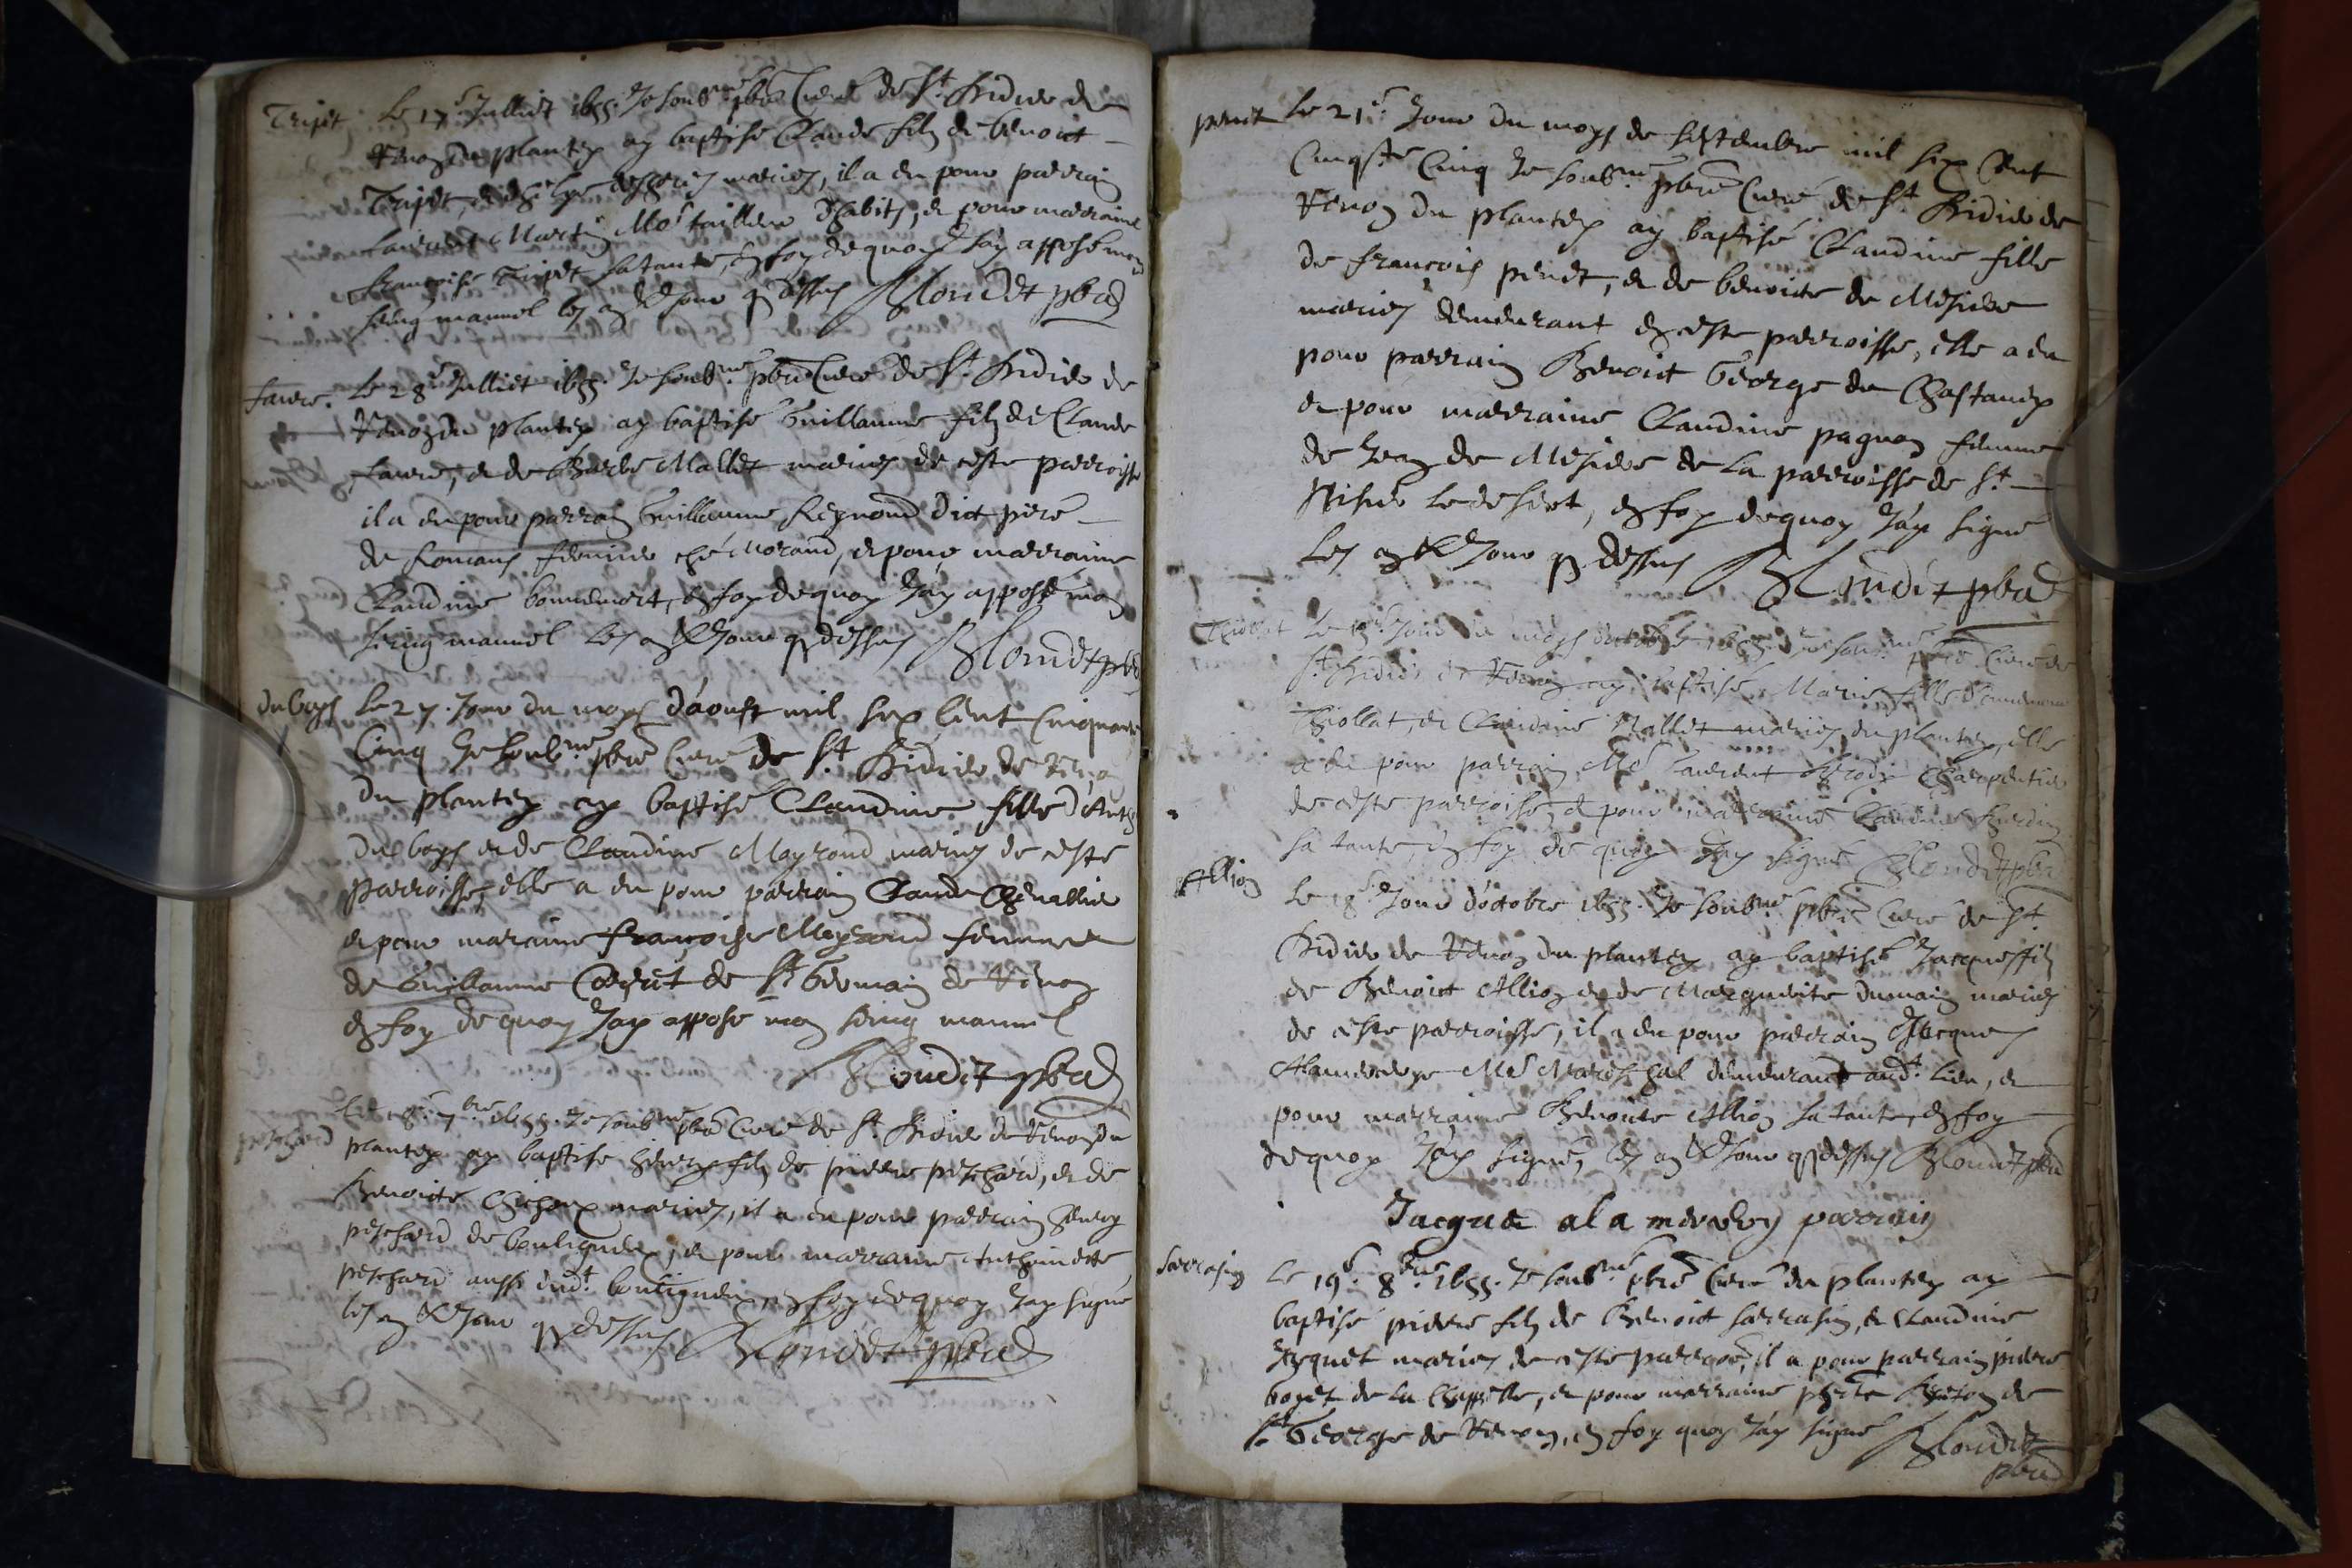 Tripet Le 17e Julliet 1655. Je soubne pbre Curé de St. Didier de
Renon du plantey ay baptisé Claude filz de benoict
Tripet, et mariez, il a eu pour parrain
Laurent Martin Me tailleur d'habitz, et pour marraine
francoise Tripet sa tante, en foy dequoy J'ay apposé mon
seing manuel les an & Jour q dessus Blondet pbre
faure. Le 28e Julliet 1655. Je soubne pbre Curé de St. Didier de
Renon du plantey ay baptisé Guillaume filz de Claude
faure, et de Barbe Mallet mariez de ceste parroisse
il a eu pour parrain Guillaume Reynond dict piere
de Romans fermier ché Morand, et pour marraine
Claudine bonnemort, en foy dequoy J'ay apposé mon
seing manuel les an & Jour q dessus Blondet pbre
duboys Le 27. Jour du moys d'aoust mil six Cent Cinquante
Cinq Je soubne pbre Curé de St Didier de Renon
du plantey ay baptisé Claudine fille d'Anth
Du boys et de Claudine Mayrond mariez de ceste
parroisse, elle a eu pour parrain Claude Chevallier
et pour maraine francoise Meyrond femme
de Guillaume de St Germain de Renon
en foy dequoy J'ay apposé mon seing manuel
Blondet pbre
Le 9e. 7bre 1655. Je soubne pbre Curé de St. Didier de Renon du
peschard plantey ay baptisé henry filz de pierre peschard, et de
Benoicte mariez, il a eu pour parrain henry
peschard de bouligneu, et pour marraine Anthoinette
peschard aussi dudt. bouligneu, en foy dequoy J'ay signé
les an & Jour q dessus Blondet pbre
penet Le 21e. Jour du moys de septembre mil six Cent
Cinqte Cinq Je soubne. pbre Curé de St Didier de
Renon du plantey ay baptisé Claudine fille
de francois penet, et de benoicte de Mesiere
mariez demeurant en ceste parroisse, elle a eu
pour parrain Benoict George du Chastanex
et pour marraine Claudine pagnon femme
de Jean de Mesiere de la parroisse de St
Nisier le desert, en foy dequoy J'ay signé
Les an & Jour q dessus Blondet pbre
Thiollat Le Jour du moys d'octobre 1655. Je soubne pbre Curé de
St. Didier de Renon ay baptisé Marie fille
Thiollat, et Claudine Mallet mariez du plantey, elle
a eu pour parrain Me Laurent Charpentier
de ceste parroisse, et pour marraine Claudine
sa tante, en foy de quoy J'ay signé Blondet pbre
Allion Le 18e. Jour d'octobre 1655. Je soubne pbre Curé de St.
Didier de Renon du plantey ay baptisé Jacques filz
de Benoict Allion et de Marguerite Dumain mariez
de ceste parroisse, il a eu pour parrain Jacques
Alamercery Me Mareschal demeurant audt. lieu, et
pour marraine Benoicte Allion sa tante, en foy
dequoy J'ay signé, les an & Jour q dessus Blondet pbre
Jacque alamercery parrain
Sarrasin Le 19e. 8bre 1655. Je soubne pbre Curé du plantey ay
baptisé pierre filz de Benoict Sarrasin, et Claudine
Jayquet mariez de ceste parrosse, il a pour parrain pierre
boyet de la Chappelle, et pour marraine de
St George de Renon, en foy quoy J'ay signé Blondet
pbre